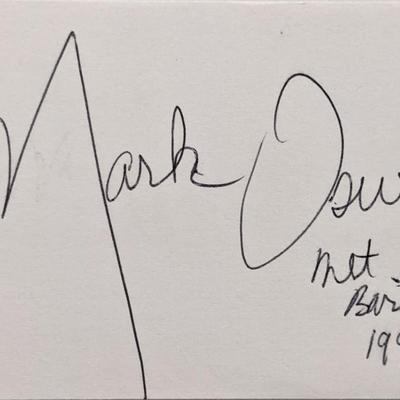 Mark Osw
Met
Bari
199